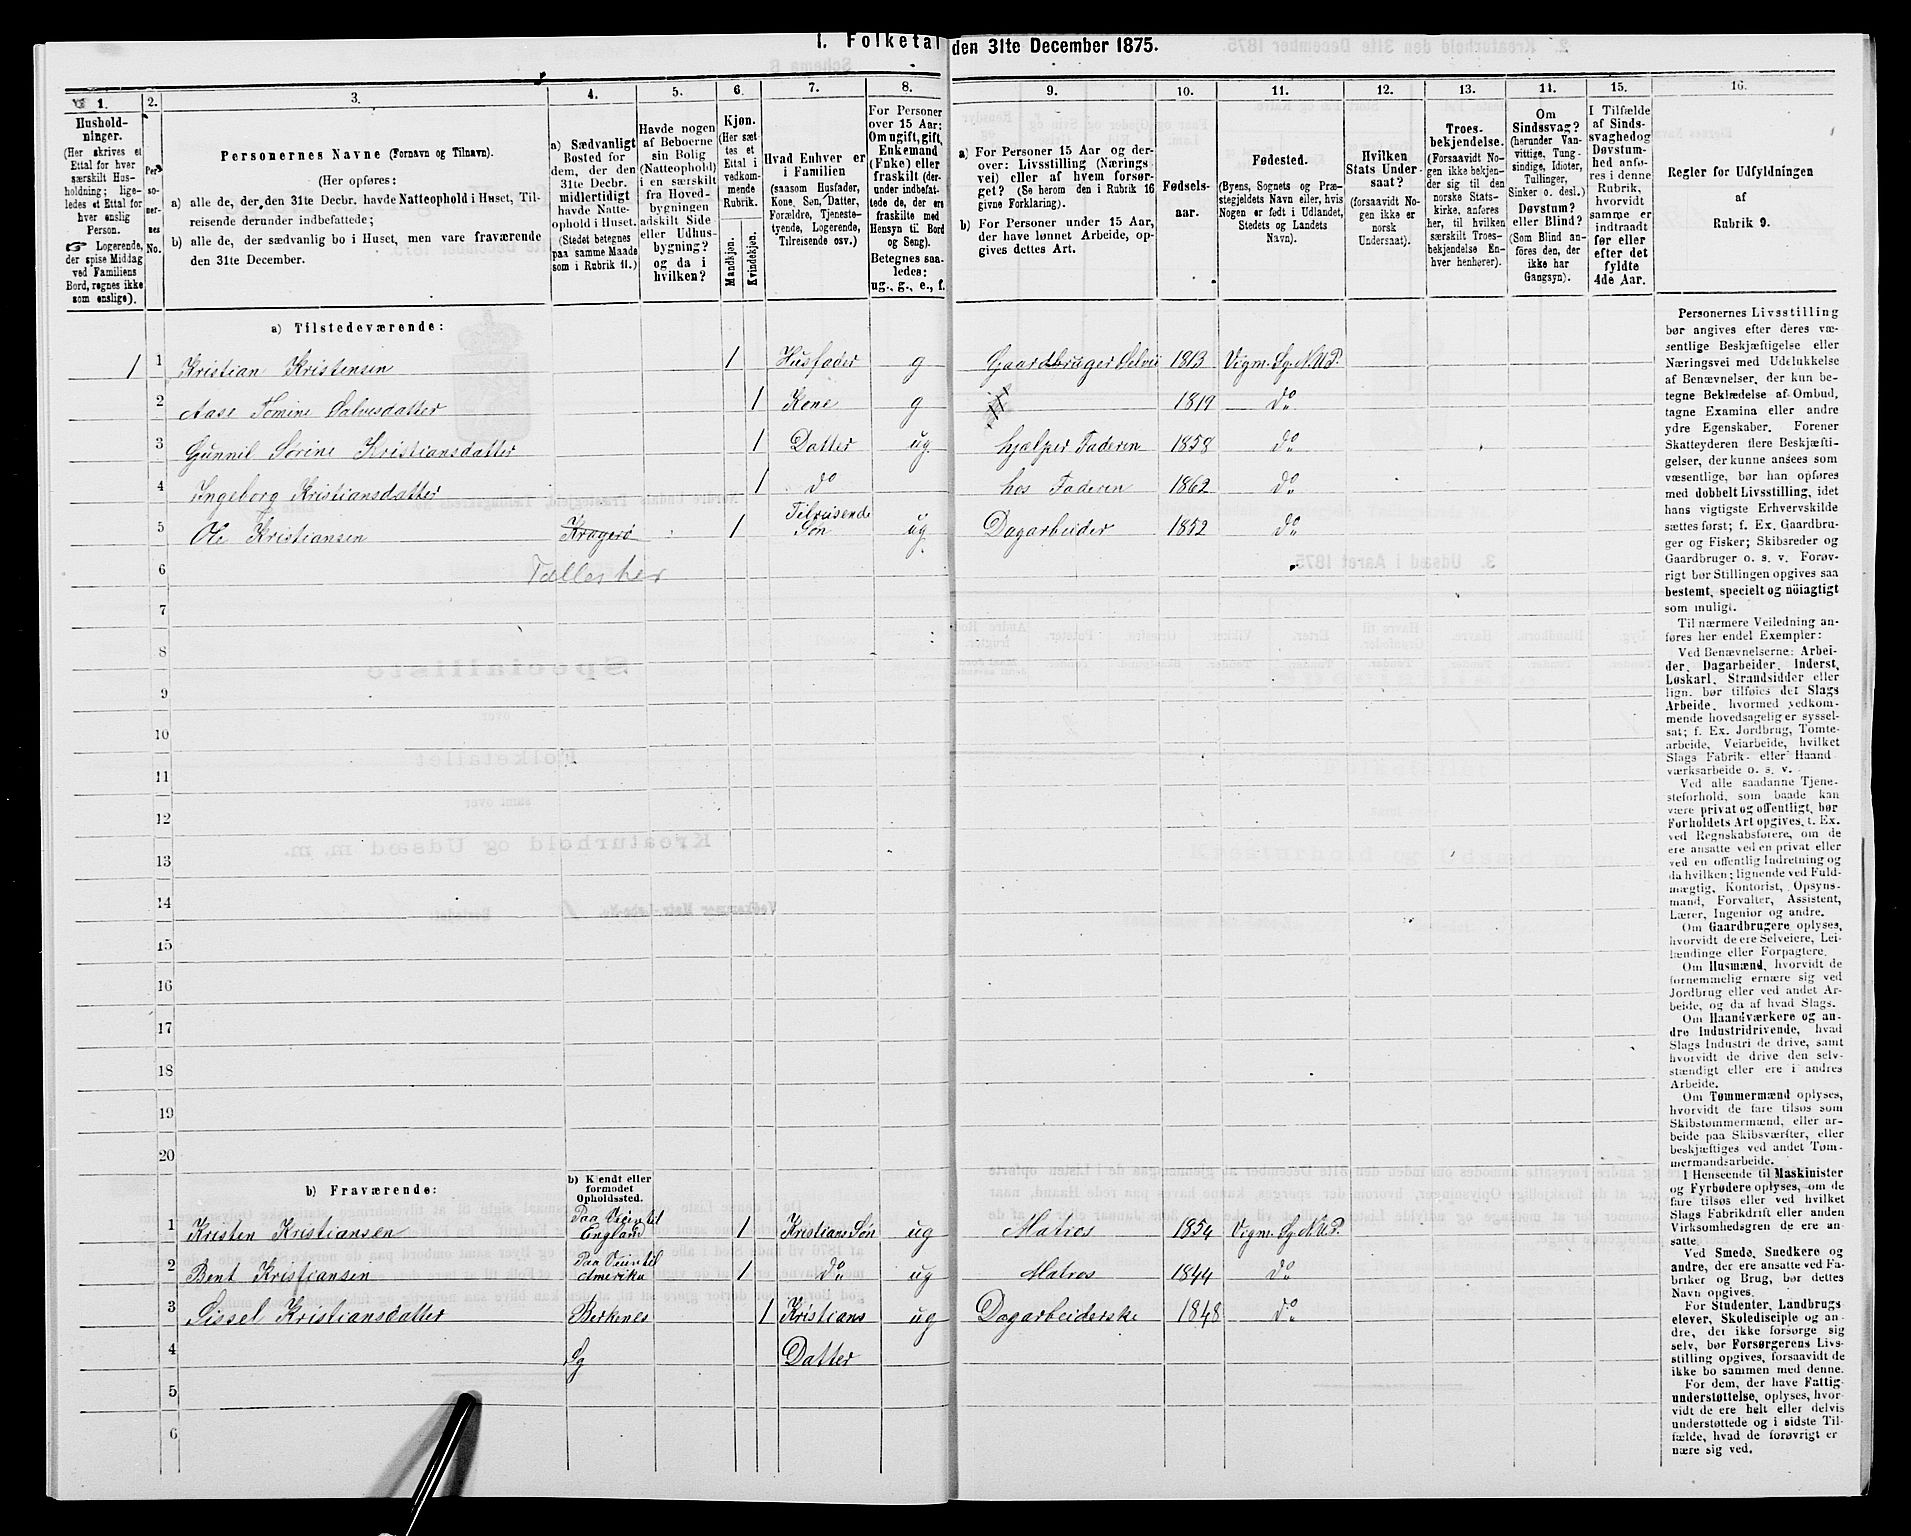 1. Folketal den 31te December 1875.
1. 2. 3. 4. 5. 6. 7. 8. 9. 10. 11. 12. 13. 14. 15. 16.
Hushold-
ninger.
(Her skrives et
Ettal for hver
særskilt Hus-
holdning; lige-
ledes et Ettal for
hver enslig
Person.
☞ Logerende,
der spise Middag
ved Familiens
Bord, regnes ikke
som enslige).
Per-
so-
ner-
nes
No.
Personernes Navne (Fornavn og Tilnavn).
(Her opføres:
a) alle de, der den 31te Decbr. havde Natteophold i Huset, Til-
reisende derunder indbefattede;
b) alle de, der sædvanlig bo i Huset, men vare fraværende
den 31te December.
a) Sædvanligt
Bosted for
dem, der den
31te Decbr.
midlertidigt
havde Natte-
ophold i Huset.
(Stedet betegnes
paa samme Maade
som i Rubrik 11.)
Havde nogen
af Beboerne
sin Bolig
(Natteophold)
i en særskilt
fra Hoved-
bygningen
adskilt Side
eller Udhus-
bygning?
og da i
hvilken?
Kjøn.
(Her sæt-
tes et
Ettal i
vedkom-
mende
Rubrik.
Mandkjøn.
Kvindekjøn.
Hvad Enhver er
i Familien
(saasom Husfader,
Kone, Søn, Datter,
Forældre, Tjeneste-
tyende, Logerende,
Tilreisende osv.)
For Personer
over 15 Aar:
Om ugift, gift,
Enkemand
(Enke) eller
fraskilt (der-
under indbefat-
tede de, der ere
fraskilte med
Hensyn til Bord
og Seng).
Betegnes saa-
ledes:
ug., g., e., f.
a) For Personer 15 Aar og der-
over: Livsstilling (Nærings-
vei) eller af hvem forsør-
get? (Se herom den i Rubrik 16
givne Forklaring).
b) For Personer under 15 Aar,
der have lønnet Arbeide, op-
gives dettes Art.
Fødsels-
aar.
Fødested.
(Byens, Sognets og Præ-
stegjeldets Navn eller, hvis
Nogen er født i Udlandet,
Stedets og Landets
Navn).
Hvilken
Stats Under-
saat?
(forsaavidt No-
gen ikke er
norsk
Undersaat).
Troes-
bekjendelse.
(Forsaavidt No-
gen ikke bekjen-
der sig til den
norske Stats-
kirke, anføres
her, til hvilken
særskilt Troes-
bekjendelse En-
hver henhører).
Om
Sindssvag?
(herunder Van-
vittige, Tung-
sindige, Idioter,
Tullinger,
Sinker o. desl.)
Døvstum?
eller Blind?
(Som Blind an-
føres den, der
ikke har
Gangsyn).
I Tilfælde
af Sinds-
svaghed og
Døvstum-
hed anfø-
res i denne
Rubrik,
hvorvidt
samme er
indtraadt
før eller
efter det
fyldte
4de Aar.
Regler for Udfyldningen
af
Rubrik 9.
a) Tilstedeværende:
1 1 Kristian Kristensen 1 Husfader g Gaardbruger Selvei 1813 Vigm. Sg. N.M.P.
2 Aase Tomine Salvesdatter 1 Kone g 1819 do
3 Gunnil Sørine Kristiansdatter 1 Datter ug hjælper Faderen 1858 do
4 Ingeborg Kristiansdatter 1 do hos Faderen 1862 do
5 Ole Kristiansen Kragerø 1 Tilreisende Søn ug Dagarbeider 1852 do
6 Tælles her
7
8
9
10
11
12
13
14
15
16
17
18
19
20
b) Fraværende:
b) Kjendt eller
formodet
Opholdssted.
1 Kristen Kristiansen Paa Veien til England 1 Kristians Søn ug Matros 1854 Vigm. Sg. N.M.P.
2 Bent Kristiansen Paa Veien til Amerika 1 do ug Matros 1844 do
3 Sissel Kristiansdatter Berkenes 1 Kristians ug Dagarbeiderske 1848 do
4 Sg Datter
5
6
Personernes Livsstilling
bør angives efter deres væ-
sentlige Beskjæftigelse eller
Næringsvei med Udelukkelse
af Benævnelser, der kun be-
tegne Beklædelse af Ombud,
tagne Examina eller andre
ydre Egenskaber. Forener
Skatteyderen flere Beskjæfti-
gelser, der kunne ansees som
væsentlige, bør han opføres
med dobbelt Livsstilling, idet
hans vigtigste Erhvervskilde
sættes først; f. Ex. Gaardbru-
ger og Fisker; Skibsreder og
Gaardbruger o. s. v. Forøv-
rigt bør Stillingen opgives saa
bestemt, specielt og nöiagtigt
som muligt.
Til nærmere Veiledning an-
føres her endel Exempler:
Ved Benævnelserne: Arbei-
der, Dagarbeider, Inderst,
Løskarl, Strandsidder eller
lign. bør tilføies det Slags
Arbeide, hvormed vedkom-
mende hovedsagelig er syssel-
sat; f. Ex. Jordbrug, Tomte-
arbeide, Veiarbeide, hvilket
Slags Fabrik- eller Haand
værksarbeide o. s. v.
Ved alle saadanne Tjene-
steforhold, som baade kan
være privat og offentligt, bør
Forholdets Art opgives, t. Ex.
ved Regnskabsførere, om de
ere ansatte ved en privat eller
ved en offentlig Indretning og
da hvilken; lignende ved Fuld-
mægtig, Kontorist, Opsyns-
mand, Forvalter, Assistent,
Lærer, Ingeniør og andre.
Om Gaardbrugere oplyses,
hvorvidt de ere Selveiere, Lei-
lændinge eller Forpagtere.
Om Husmænd, hvorvidt de
fornemmelig ernære sig ved
Jordbrug eller ved andet Ar-
beide, og da af hvad Slags.
Om Haandværkere og an-
dre Industridrivende, hvad
Slags Industri de drive, samt
hvorvidt de drive den selv-
stændigt eller ere i andres
Arbeide.
Om Tømmermænd oplyses,
hvorvidt de fare tilsøs som
Skibstømmermænd, eller ar-
beide paa Skibsværfter, eller
beskjæftiges ved andet Tøm-
mermandsarbeide.
I Henseende til Maskinister
og Fyrbødere oplyses, om de
fare tilsøs eller ved hvilket
Slags Fabrikdrift eller anden
Virksomhedsgren de ere an-
satte.
Ved Smede, Snedkere og
andre, der ere ansatte ved Fa-
briker og Brug, bør dettes
Navn opgives.
For Studenter, Landbrugs
elever, Skoledisciple og an-
dre, der ikke forsørge sig
selv, bør Forsørgerens Livs-
stilling opgives, forsaavidt de
ikke bo sammen med denne.
For dem, der have Fattig-
understøttelse, oplyses, hvor-
vidt de ere helt eller delvis
understøttede og i sidste Til-
fælde, hvad de forøvrigt er
nære sig ved.